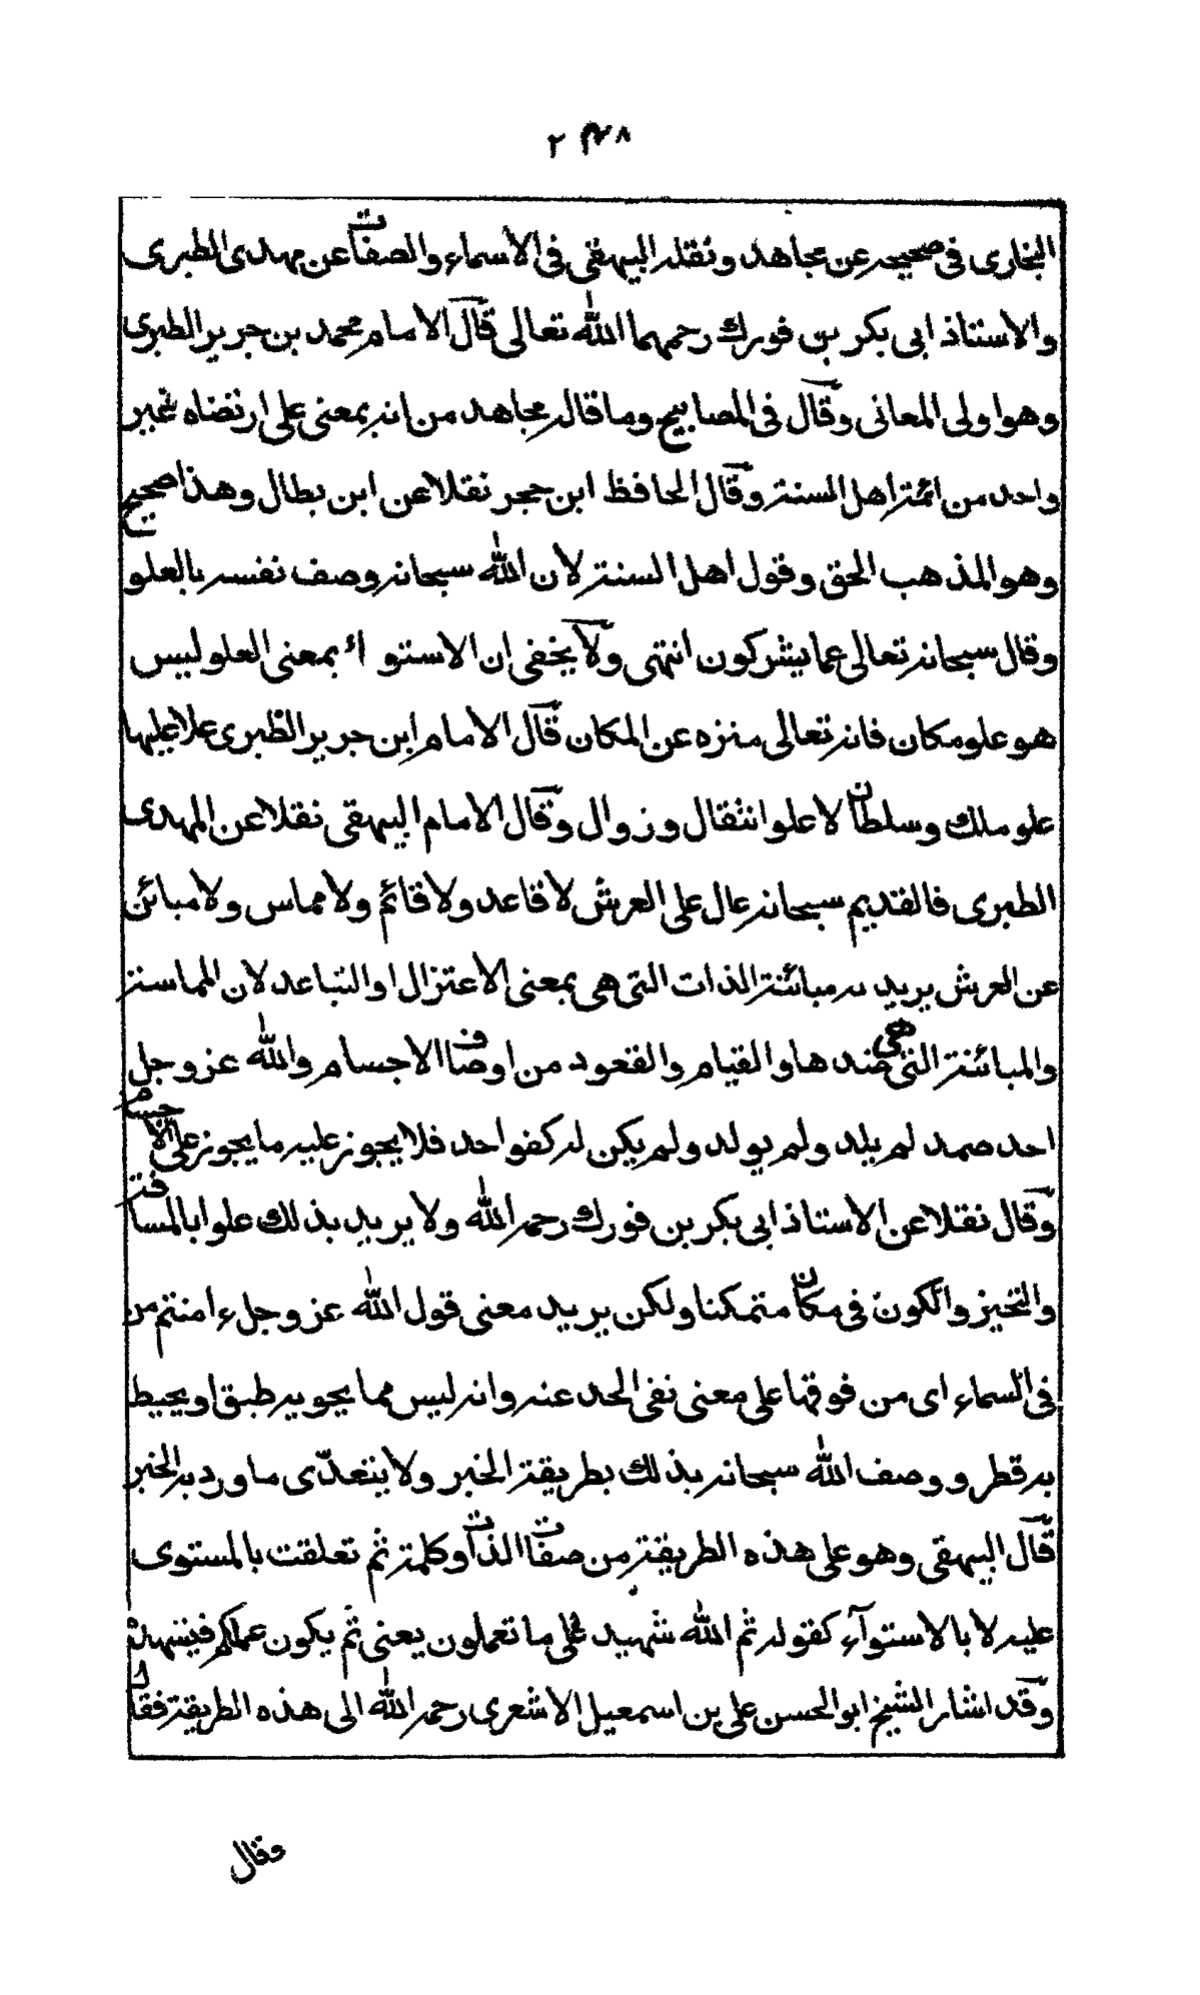 ٢٣٨
البخارى فى صحيحه عن مجاهد ونقله البيهقى فى الاسماء والصفات عن مهدى الطبرى
والاستاذ ابى بكر بن فورك رحمهما الله تعالى قال الامام محمد بن جرير الطبرى
وهو اولى المعانى وقال فى المصابيح وما قاله مجاهد من انه بمعنى على ارتضاه غير
واحد من ائمة اهل السنة وقال الحافظ ابن حجر نقلا عن ابن بطال وهذا صحيح
وهو المذهب الحق وقول اهل السنة لان الله سبحانه وصف نفسه بالعلو
وقال سبحانه تعالى عما يشركون انتهى ولا يخفى ان الاستواء بمعنى العلو ليس
هو علو مكان فانه تعالى منزه عن المكان قال الامام ابن جرير الطبرى علا عليها
علو ملك وسلطان لا علو انتقال وزوال وقال الامام البيهقى نقلا عن المهدى
الطبرى فالقديم سبحانه عال على العرش لا قاعد ولا قائم ولا مماس ولا مبائن
عن العرش يريد به مبائنة الذات التى هى بمعنى الاعتزال او التباعد لان المماسة
والمبائنة التى هى ضدها والقيام والقعود من اوصاف الاجسام والله عز وجل
احد صمد لم يلد ولم يولد ولم يكن له كفوا احد فلا يجوز عليه ما يجوز على الاجسام
وقال نقلا عن الاستاذ ابى بكر بن فورك رحمه الله ولا يريد بذلك علوا بالمسافة
والتحيز والكون فى مكان متمكنا ولكن يريد معنى قول الله عز وجل ءامنتم من
فى السماء اى من فوقها على معنى نفى الحد عنه وانه ليس مما يحويه طبق او يحيط
به قطر ووصف الله سبحانه بذلك بطريقة الخبر ولا يتعدّى ما ورد به الخبر
قال البيهقى وهو على هذه الطريقة من صفات الذات وكلمة ثم تعلقت بالمستوى
عليه لا بالاستوآء كقوله ثم الله شهيد على ما تعملون يعنى ثم يكون عملكم فيشهده
وقد اشار الشيخ ابو الحسن على بن اسمعيل الاشعرى رحمه الله الى هذه الطريقة فقال
وقال